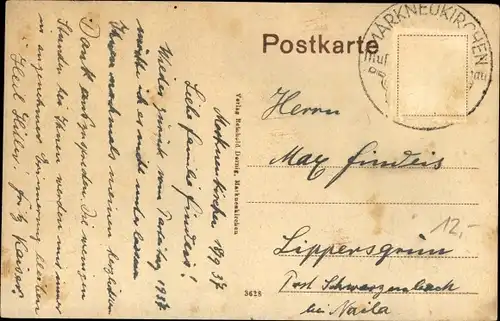 Postkarte
MARKNEUKIRCHEN
Markneukirchen 18/9 37
Liebe Familie Findeis!
Wieder zurück vom Parteitag 1937
möchte ich es nicht unterlassen
Ihnen nochmals meinen herzlichen
Dank auszusprechen. Die wenigen
Stunden bei Ihnen werden mir immer
in angenehmer Erinnerung bleiben
Heil Hitler!
Verlag Reinhold Markneukirchen
3628
Herrn
Max Findeis
12,-
Lippersgrün
Post Schwarzenbach
bei Naila